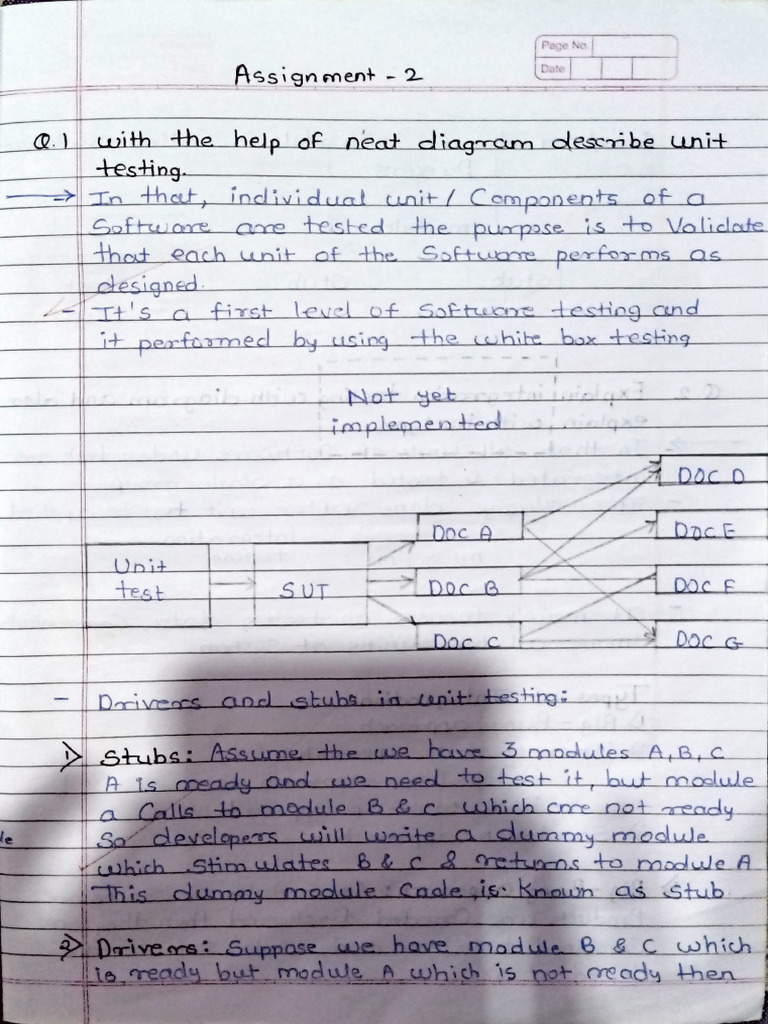 Page No.
Date
Assignment - 2
Q.1 with the help of neat diagram describe unit
testing.
→ In that, individual unit / Components of a
Software are tested the purpose is to Validate
that each unit of the Software performs as
designed.
- It's a first level of Software testing and
it performed by using the white box testing
Not yet
implemented
DOC D
DOC A
DOC E
Unit
test
SUT
DOC B
DOC F
DOC C
DOC G
- Drivers and stubs in unit testing:
1) Stubs: Assume the we have 3 modules A, B, C
A is ready and we need to test it, but module
a Calls to module B & C which are not ready
So developers will write a dummy module
which Stimulates B & C & returns to module A
This dummy module Code is Known as Stub
2) Drivers: Suppose we have module B & C which
is ready but module A which is not ready then